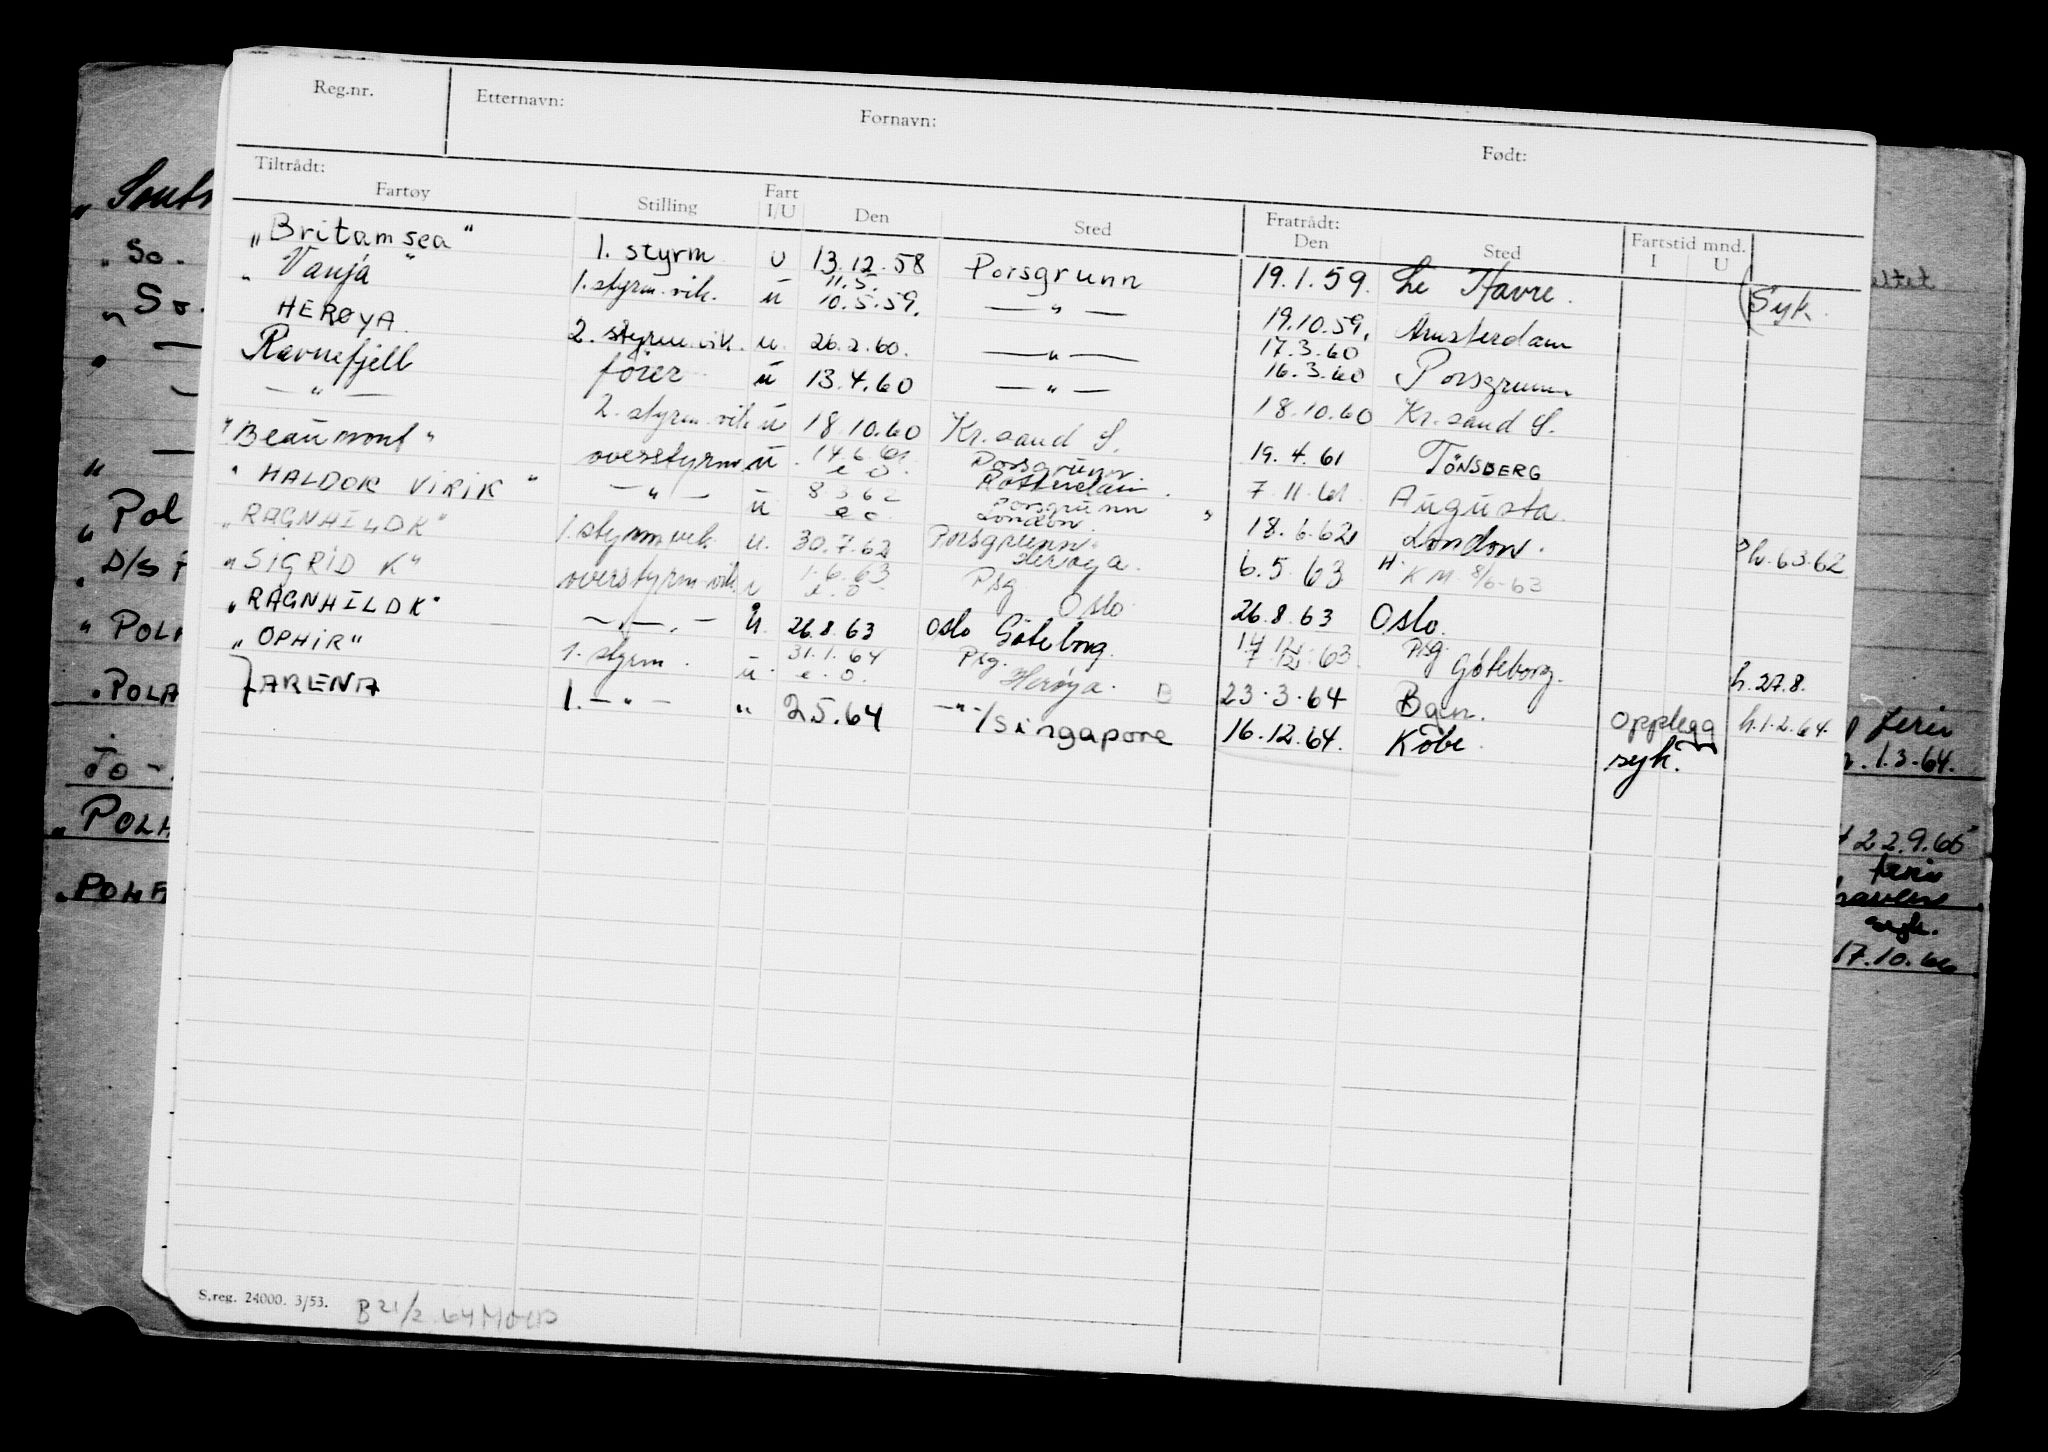 Reg.nr. Etternavn: Fornavn: Født:
Tiltrådt: Fratrådt:
Fartøy Stilling Fart I/U Den Sted Den Sted Fartstid mnd. I U
„Britamsea" 1. styrm u 13.12.58 Porsgrunn 19.1.59. Le Havre. (Syk.
„Vanja" 1. styrm. vik. u 11.5. 10.5.59. — " — 19.10.59. Amsterdam
HERØYA 2. styrm. vik. u. 26.2.60. — " — 17.3.60 16.3.60 Porsgrunn
Ravnefjell fører u 13.4.60 — " — 18.10.60 Kr. sand S.
— " — 2. styrm. vik u 18.10.60 Kr. sand S. 19.4.61 TÖNSBERG
"Beaumont" overstyrm. u. 14.6.61 e.o. Porsgrunn Rotterdam. 7.11.61 Augusta.
"HALDOR VIRIK" — " — u 8.3.62 e.o. Porsgrunn London. " 18.6.62 London.
„RAGNHILDK" 1. styrm vik. u. 30.7.62 Porsgrunn Herøya. 6.5.63 H. KM. 8/6-63 h. 6.3.62
„SIGRID K" overstyrm-vik. u 1.6.63 e.o. Psg Oslo 26.8.63 Oslo.
„RAGNHILDK" — " — u. 26.8.63 Oslo Göteborg. 17.12. 7.12.63. Psg. Göteborg. h. 27.8.
„OPHIR" 1. styrm. u. 31.1.64 e.o. Psg. Herøya. B 23.3.64 Bgn. Opplegg h.1.2.64.
}ARENA 1. — " — " 2.5.64 — " —/Singapore 16.12.64. Kobe. syk.
S.reg. 24000. 3/53.
B 21/2 64
„So.
„So.
„Pol
D/s F
"POLA
„POLA
To -
„POLA
„POLA
ferie
1.3.64.
22.9.65
ferie
syk.
17.10.66